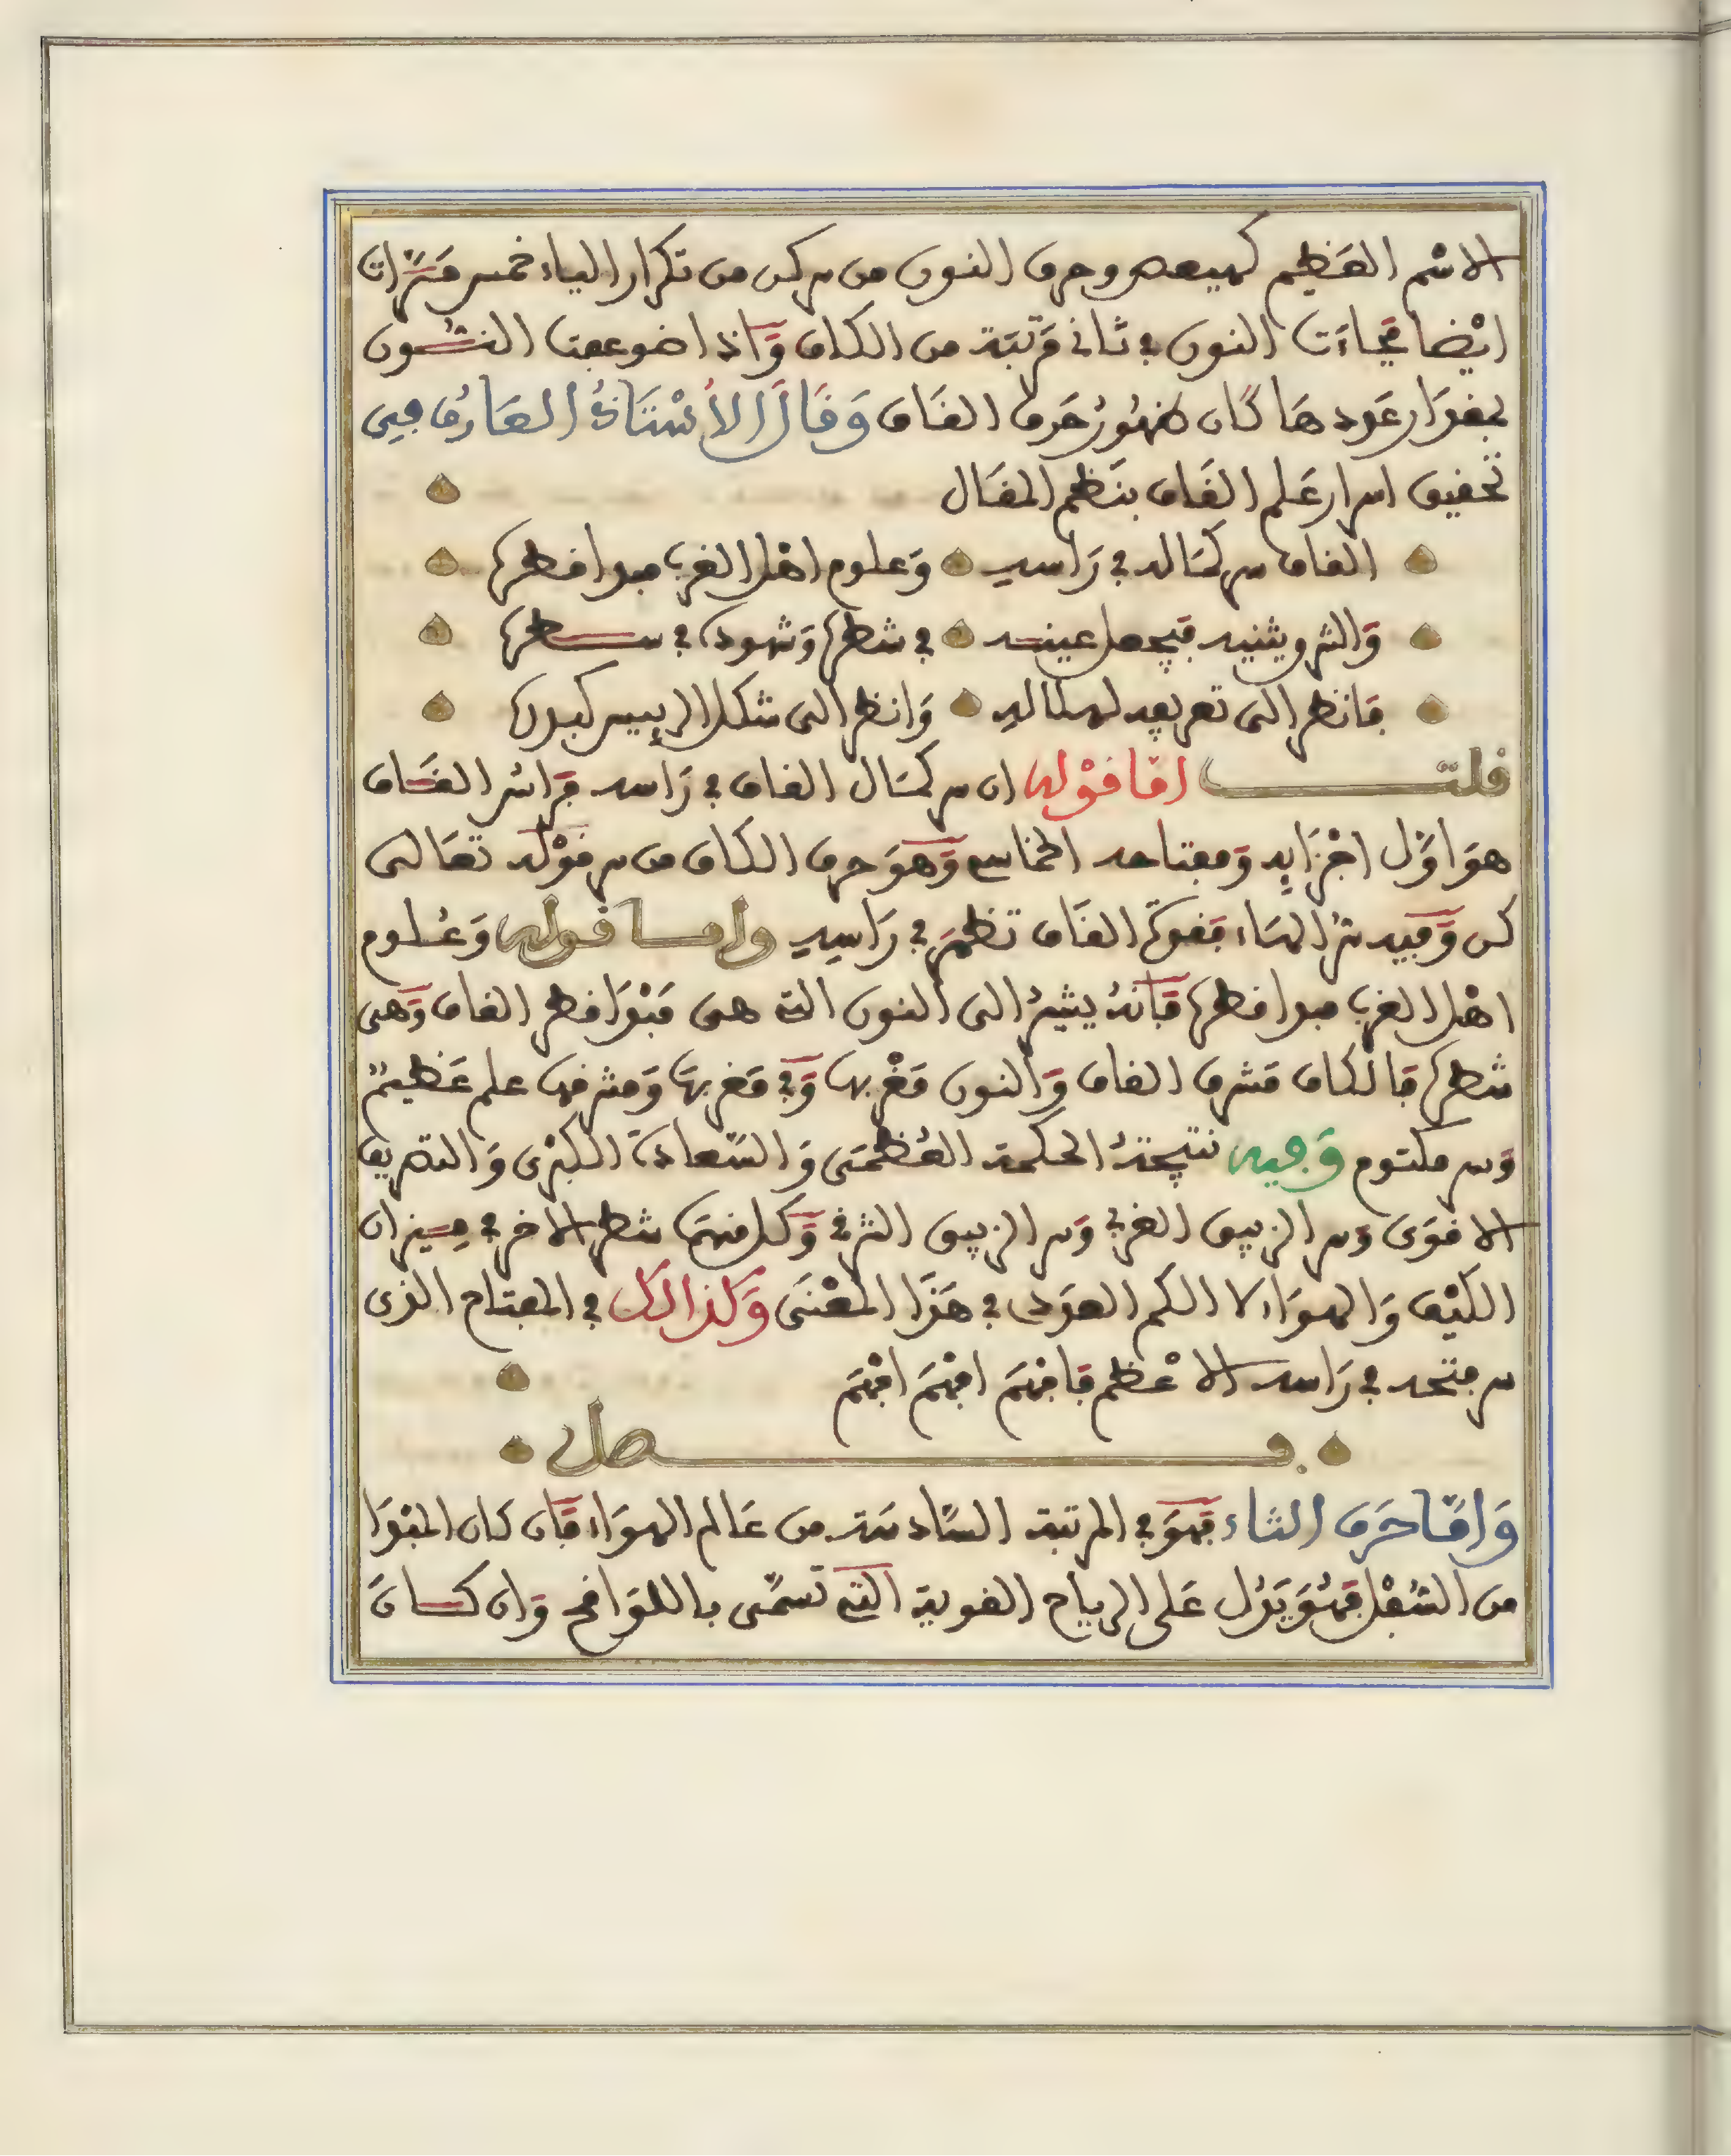 الاسم العظيم كهيعص وحرف النون من سر كن من تكرار الياء خمس مرات
ايضا فجاءت النون في ثاني مرتبة من الكاف واذا ضوعفت النون
بمقدار عددها كان ظهور حرف القاف وقال الأستاذ العارف في
تحقيق اسرار علم القاف بنظم المقال
القاف سر كماله في راسه وعلوم اهل الغرب مبدا قطره
والشرق يثنيه فيجعل عينه في شطره وشهوده في سطره
فانظر الى تعريفه لهلاله وانظر الى شكل الرييس كبدره
قلت اما قوله ان سر كمال القاف في راسه فراس القاف
هو اول اجزايه ومفتاحه الخامس وهو حرف الكاف من سر قوله تعالى
كن وفيه سر الهاء فقوة القاف تظهر في راسه واما قوله وعلوم
اهل الغرب مبدا قطره فانه يشير الى النون التي هي مبدا قطر القاف وهي
شطره فالكاف مشرق القاف والنون مغربها وفي مغربها ومشرقها علم عظيم
وسر مكتوم وفيه نتيجة الحكمة العظمى والسعادة الكبرى والتصريف
الاقوى وسر الزيبق الغربي وسر الزيبق الشرقي وكل منهما شطر الاخر في ميزان
الكيف والهواء لا الكم العددي في هذا المعنى وكذالك في المفتاح الذي
سر فتحه في راسه الاعظم فافهم افهم افهم
فصل
واما حرف الثاء فهو في المرتبة السادسة من عالم الهواء فان كان المبدا
من السفل فهو يدل على الرياح القوية التي تسمى باللواقح وان كان